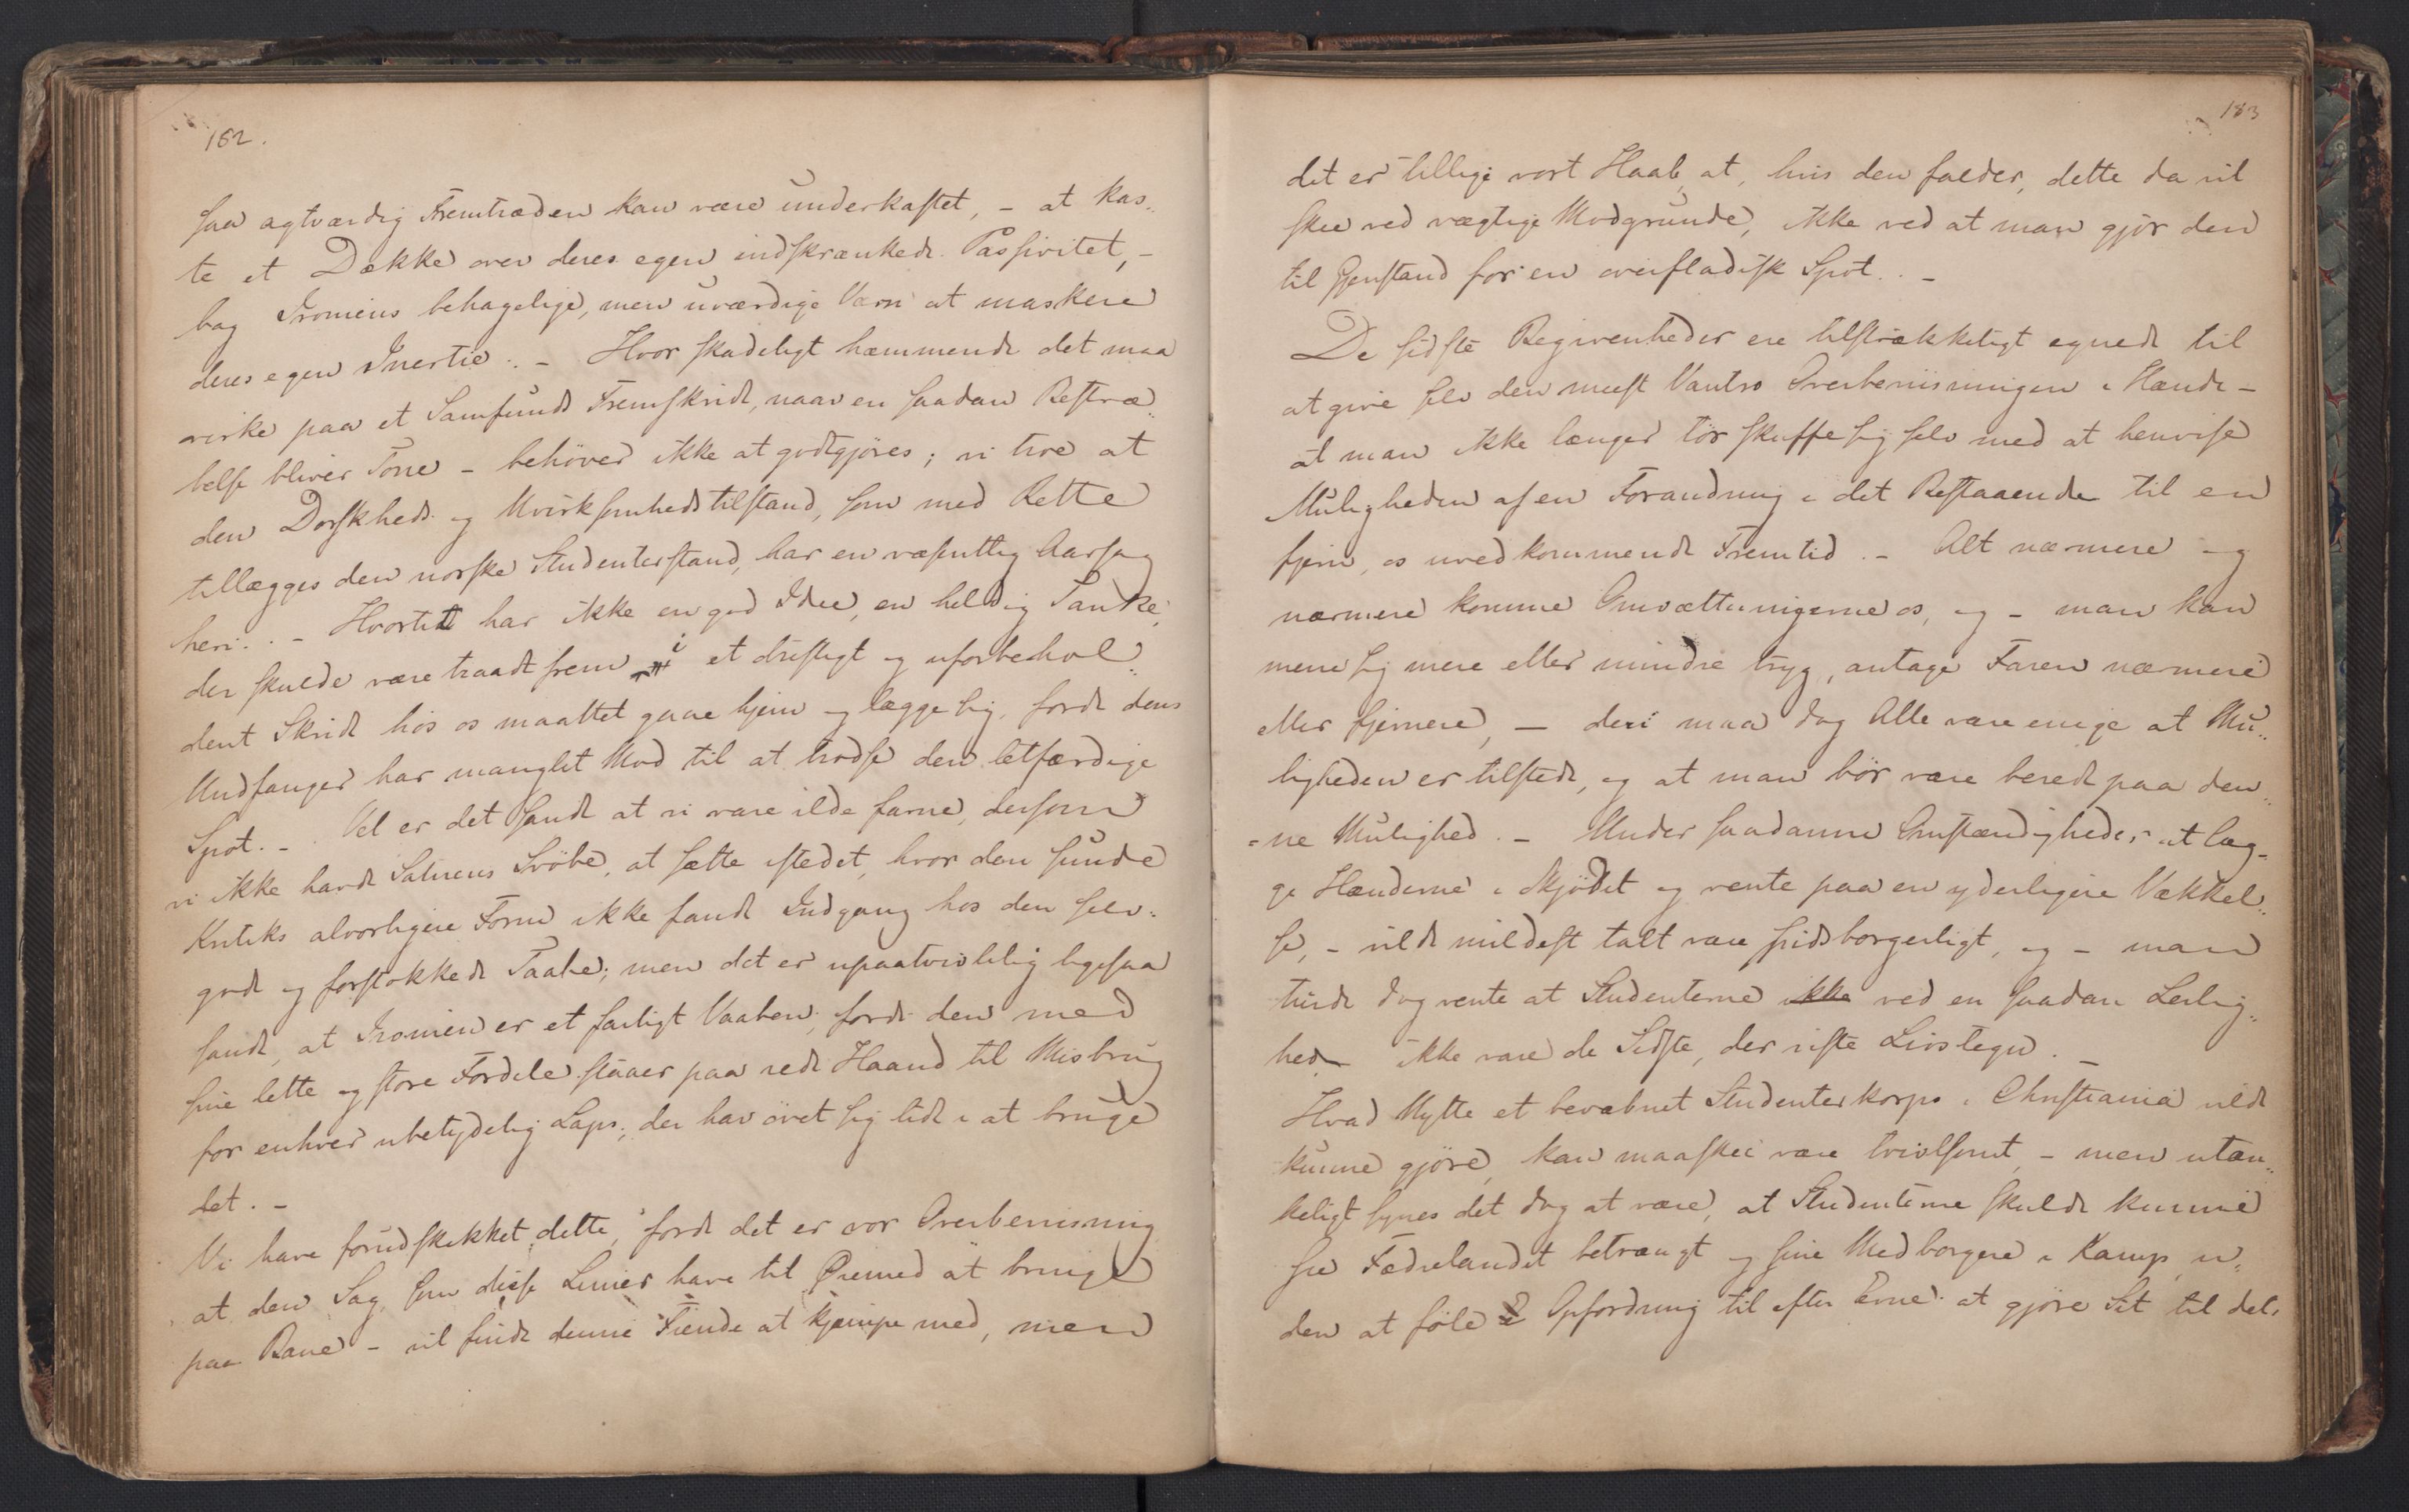 182.
saa agtværdig Fremtræden kan være underkastet, – at kas„
te et Dække over deres egen indskrænkede Passivitet, –
bag Ironiens behagelige, men uværdige Værn at maskere
deres egen Inertie. – Hvor skadeligt hæmmende det maa
virke paa et Samfunds Fremskridt, naar en saadan Bestræ„
belse bliver Tone – behøver ikke at godtgjøres; vi troe at
den Dorskheds og Uvirksomhedstilstand, som med Rette
tillægges den norske Studenterstand, har en væsentlig Aarsag
heri. – Hvortidt har ikke en god Idee, en heldig Tanke,
der skulde være traadt frem i et dristigt og uforbehol„
dent Skridt hos os maattet gaae hjem og lægge sig, fordi dens
Undfanger har manglet Mod til at trodse den letfærdige
Spot. – Vel er det sandt at vi vare ilde farne, dersom
vi ikke havde Satirens Svøbe, at sætte istedet, hvor den sunde
Kritiks alvorligere Form ikke fandt Indgang hos den selv„
gode og forstokkede Taabe; men det er upaatvivlelig ligesaa
sandt, at Ironien er et farligt Vaaben, fordi den med
sine lette og store Fordele staaer paa rede Haand til Misbrug
for enhver ubetydelig Laps, der har øvet sig lidt i at bruge
det. –
Vi have forudskikket dette, fordi det er vor Overbeviisning
at den Sag som disse Linier have til Øiemed at bringe
paa Bane – vil finde denne Fiende at kjæmpe med, men
183
det er tillige vort Haab, at, hvis den falder, dette da vil
skee ved vægtige Modgrunde, ikke ved at man gjør den
til Gjenstand for en overfladisk Spot. –
De sidste Begivenheder ere tilstrækkeligt egnede til
at give selv den meest Vantro Overbeviisningen i Hænde –
at man ikke længer tør skuffe sig selv med at henvise
Muligheden af en Forandring i det Bestaaende til en
fjern, os uvedkommende Fremtid. – Alt nærmere og
nærmere komme Omvæltningerne os, og – man kan
mene sig mere eller mindre tryg, antage Faren nærmere
eller fjernere, – deri maa dog Alle være enige at Mu„
ligheden er tilstede, og at man bør være beredt paa den„
=ne Mulighed. – Under saadanne Omstændigheder at læg„
ge Hænderne i Skjødet og vente paa en yderligere Vækkel„
se, – vilde mildest talt være spidsborgerligt, og – man
turde dog vente at Studenterne ikke ved en saadan Leilig„
hed ikke vare de Sidste, der viste Livstegn. –
Hvad Nytte et bevæbnet Studenterkorps i Christiania vilde
kunne gjøre, kan maaskee være tvivlsomt, – men utæn„
keligt synes det dog at være, at Studenterne skulde kunne
see Fædrelandet betrængt og sine Medborgere i Kamp, u„
den at føle Opfordring til efter Evne at gjøre Sit til det.